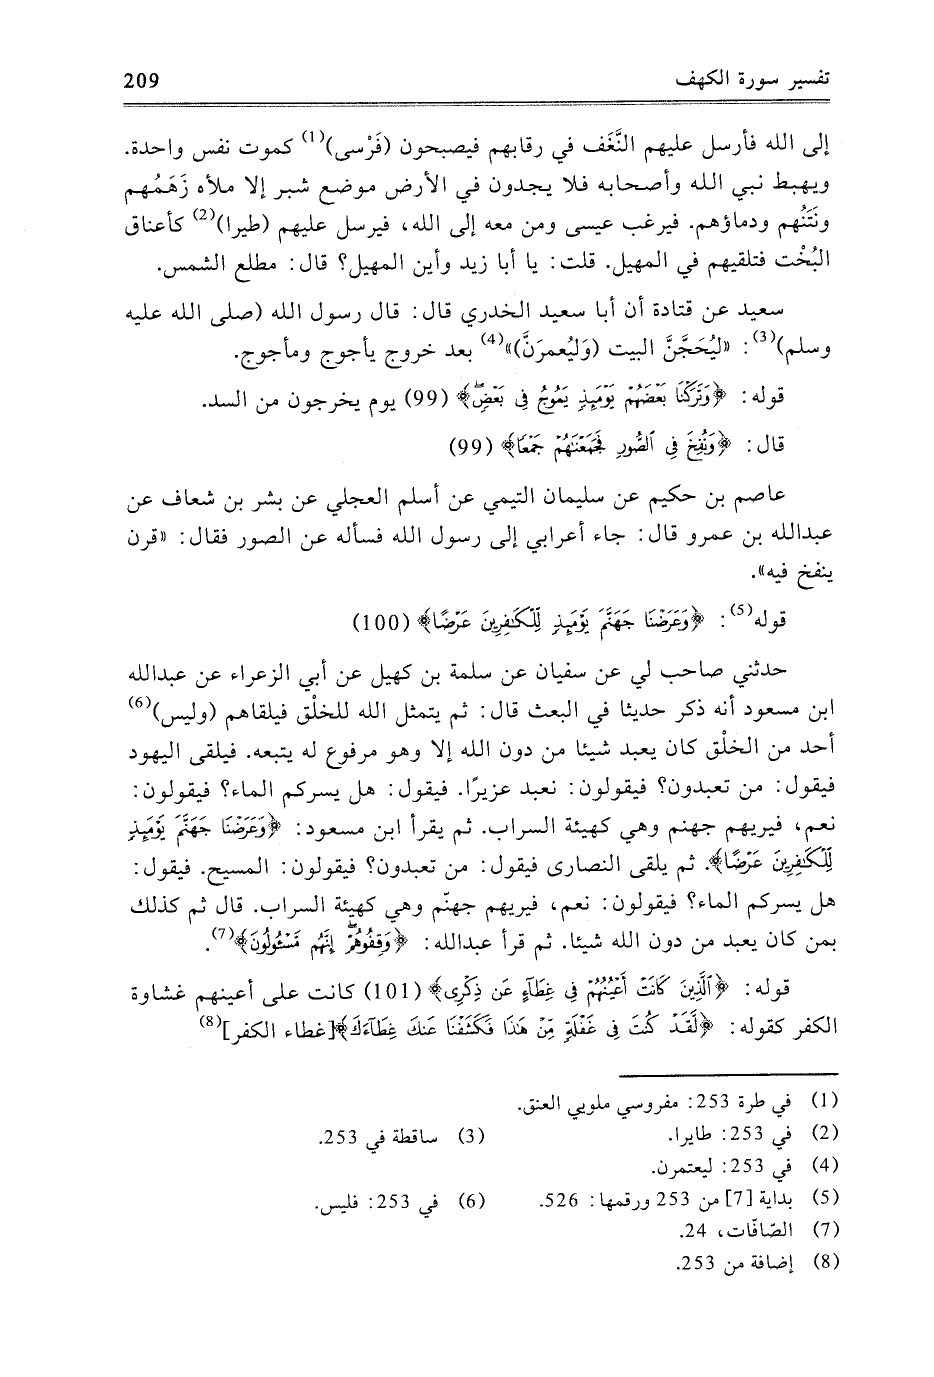 تفسير سورة الكهف 209
إلى الله فأرسل عليهم النَّغَف في رقابهم فيصبحون (فَرْسى)(1) كموت نفس واحدة.
ويهبط نبي الله وأصحابه فلا يجدون في الأرض موضع شبر إلا ملأه زَهَمُهم
ونَتَنُهم ودماؤهم. فيرغب عيسى ومن معه إلى الله، فيرسل عليهم (طيرا)(2) كأعناق
البُخْت فتلقيهم في المهيل. قلت: يا أبا زيد وأين المهيل؟ قال: مطلع الشمس.
سعيد عن قتادة أن أبا سعيد الخدري قال: قال رسول الله (صلى الله عليه
وسلم)(3): «ليُحَجَّنَّ البيت (وَليُعمرَنَّ)»(4) بعد خروج يأجوج ومأجوج.
قوله: ﴿وَتَرَكْنَا بَعْضَهُمْ يَوْمَئِذٍ يَمُوجُ فِي بَعْضٍ﴾ (99) يوم يخرجون من السد.
قال: ﴿وَنُفِخَ فِي ٱلصُّورِ فَجَمَعْنَٰهُمْ جَمْعًا﴾ (99)
عاصم بن حكيم عن سليمان التيمي عن أسلم العجلي عن بشر بن شعاف عن
عبدالله بن عمرو قال: جاء أعرابي إلى رسول الله فسأله عن الصور فقال: «قرن
ينفخ فيه».
قوله(5): ﴿وَعَرَضْنَا جَهَنَّمَ يَوْمَئِذٍ لِّلْكَٰفِرِينَ عَرْضًا﴾ (100)
حدثني صاحب لي عن سفيان عن سلمة بن كهيل عن أبي الزعراء عن عبدالله
ابن مسعود أنه ذكر حديثا في البعث قال: ثم يتمثل الله للخلْق فيلقاهم (وليس)(6)
أحد من الخلْق كان يعبد شيئا من دون الله إلا وهو مرفوع له يتبعه. فيلقى اليهود
فيقول: من تعبدون؟ فيقولون: نعبد عزيرًا. فيقول: هل يسركم الماء؟ فيقولون:
نعم، فيريهم جهنم وهي كهيئة السراب. ثم يقرأ ابن مسعود: ﴿وَعَرَضْنَا جَهَنَّمَ يَوْمَئِذٍ
لِّلْكَٰفِرِينَ عَرْضًا﴾. ثم يلقى النصارى فيقول: من تعبدون؟ فيقولون: المسيح. فيقول:
هل يسركم الماء؟ فيقولون: نعم، فيريهم جهنّم وهي كهيئة السراب. قال ثم كذلك
بمن كان يعبد من دون الله شيئا. ثم قرأ عبدالله: ﴿وَقِفُوهُمْ إِنَّهُم مَّسْـُٔولُونَ﴾(7).
قوله: ﴿ٱلَّذِينَ كَانَتْ أَعْيُنُهُمْ فِي غِطَآءٍ عَن ذِكْرِي﴾ (101) كانت على أعينهم غشاوة
الكفر كقوله: ﴿لَّقَدْ كُنتَ فِي غَفْلَةٍ مِّنْ هَٰذَا فَكَشَفْنَا عَنكَ غِطَآءَكَ﴾[غطاء الكفر](8)
(1) في طرة 253: مفروسي ملويي العنق.
(2) في 253: طايرا. (3) ساقطة في 253.
(4) في 253: ليعتمرن.
(5) بداية [7] من 253 ورقمها: 526. (6) في 253: فليس.
(7) الصّافّات، 24.
(8) إضافة من 253.